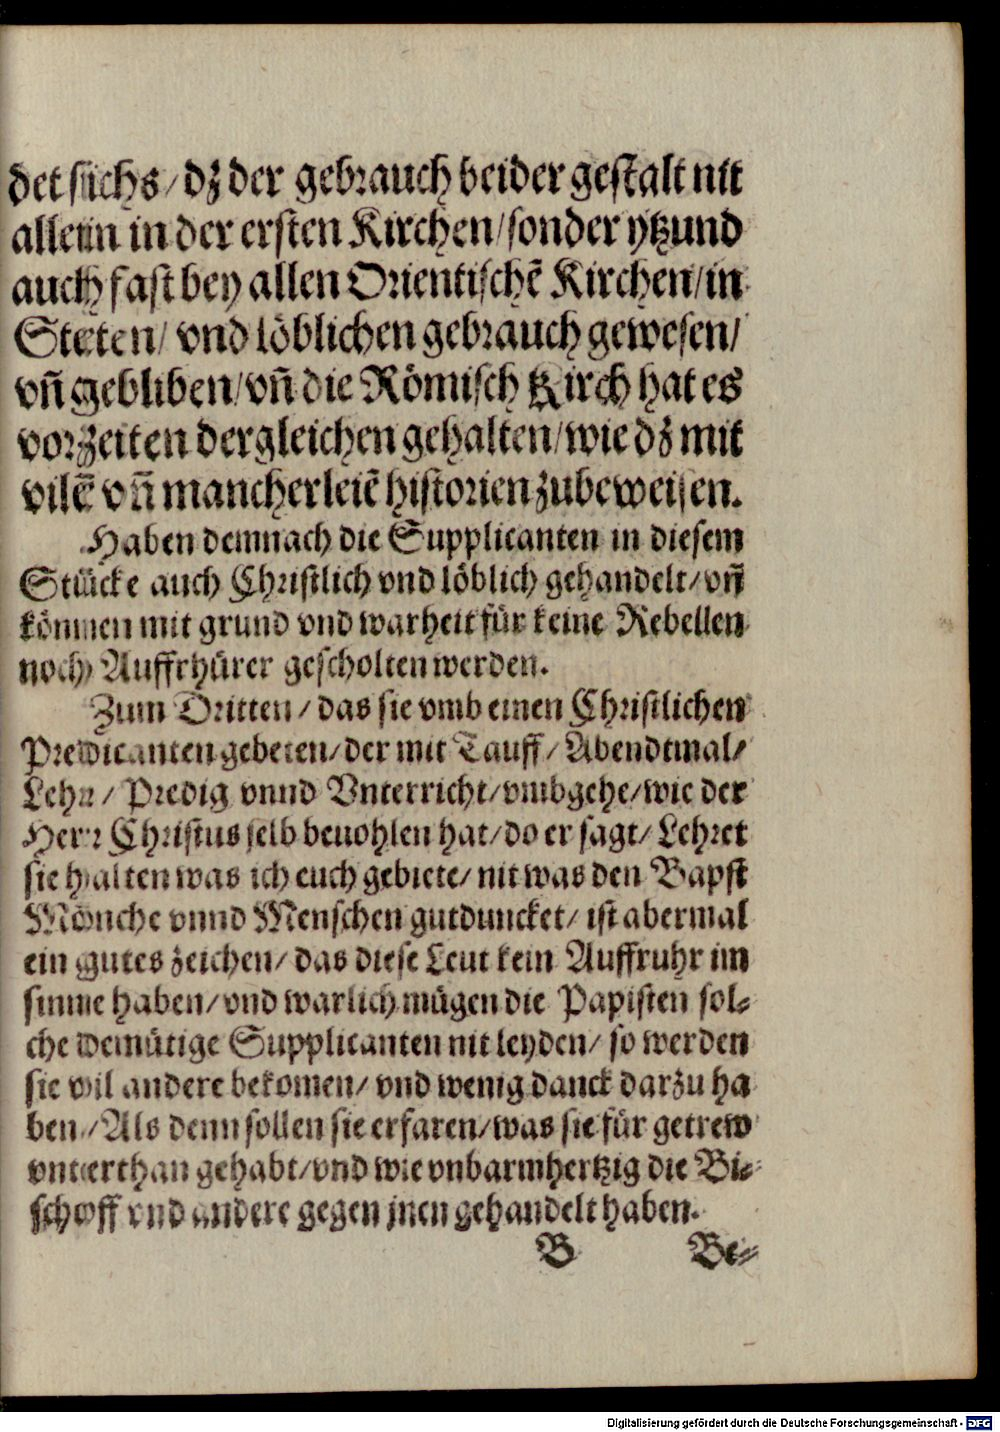 det sichs / dz der gebrauch beider gestalt nit
allein in der ersten Kirchen / sonder ytzund
auch fast bey allen Orientischẽ Kirchen / in
Steten / vnd löblichen gebrauch gewesen /
vñ gebliben / vñ die Römisch Kirch hat es
vorzeiten dergleichen gehalten / wie dz mit
vilẽ vñ mancherleiẽ historien zubeweisen.
Haben demnach die Supplicanten in diesem
Stücke auch Christlich vnd löblich gehandelt / vñ
können mit grund vnd warheit für keine Rebellen
noch Auffrhürer gescholten werden.
Zum Dritten / das sie vmb einen Christlichen
Predicanten gebeten / der mit Tauff / Abendtmal /
Lehr / Predig vnnd Vnterricht / vmbgehe / wie der
Herr Christus selb beuohlen hat / do er sagt / Lehret
sie halten was ich euch gebiete / nit was den Bapst
Mönche vnnd Menschen gutduncket / ist abermal
ein gutes zeichen / das diese Leut kein Auffruhr im
sinne haben / vnd warlich mügen die Papisten sol⸗
che demütige Supplicanten nit leyden / so werden
sie vil andere bekomen / vnd wenig danck darzu ha
ben / Als denn sollen sie erfaren / was sie für getrew
vnterthan gehabt / vnd wie vnbarmhertzig die Bi⸗
schoff vnd andere gegen jnen gehandelt haben.
B Be⸗
Digitalisierung gefördert durch die Deutsche Forschungsgemeinschaft - DFG